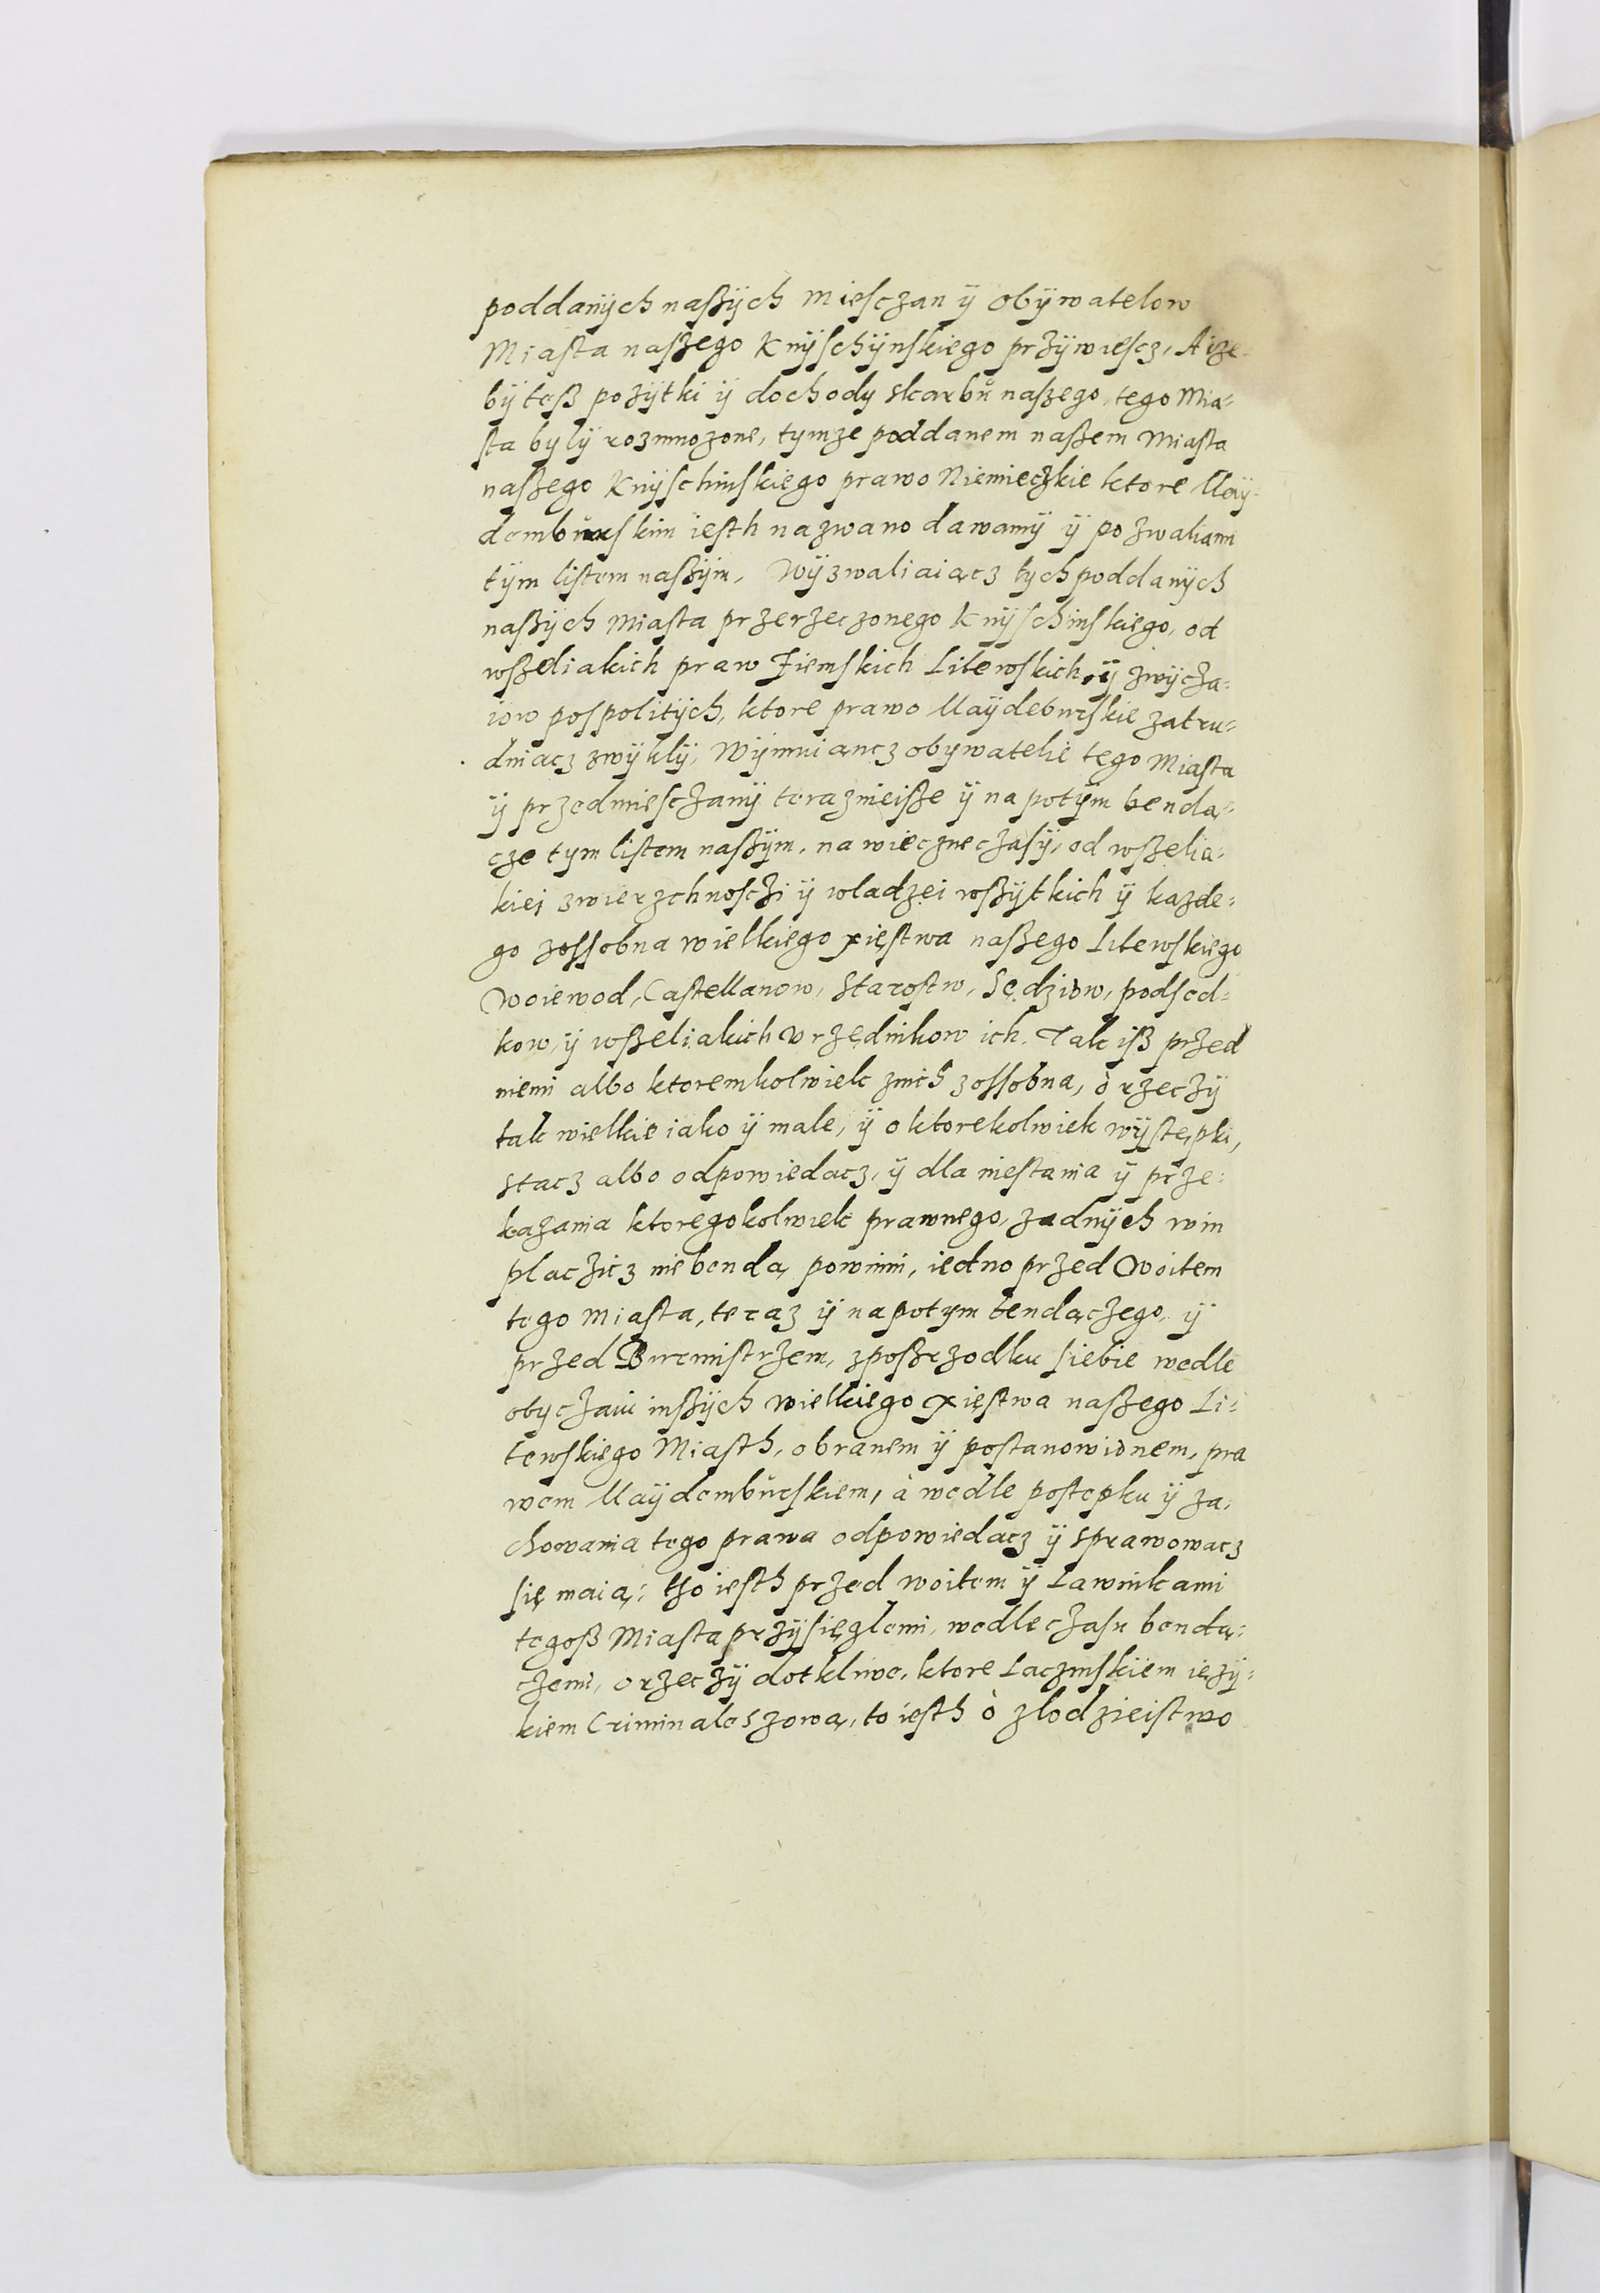 poddanÿch naßÿch Miesczan ÿ obÿwatelow
Miasta naszego Knÿschÿnskiego przÿwiescz, Aize-
bÿ teß pozÿtki ÿ dochody skarbů naszego, tego Mia-
sta bylÿ rozmnozone, tymze poddanem naßem Miasta
naßego Knÿschinskiego prawo Niemieczkie ktore Maÿ-
demburskim iesth nazwano dawamÿ ÿ pozwaliami
tÿm listem naßÿm, Wÿzwaliaiącz tych poddanÿch
naßÿch Miasta przerzeczonego Knÿschinskiego, od
wßeliakich praw Ziemskich Litewskich, ÿ zwÿcza-
iow pospolitÿch, ktore prawo Maÿdeburskie zatru-
dniacz zwÿklÿ, Wÿmuiancz obywatelie tego Miasta
ÿ przedmiesczanÿ terazmieisze ÿ na potÿm benda-
cze tym listem naßÿm, na wieczne czasÿ, od wszelia-
kiei zwierzchnosczi ÿ wladzei wßÿtkich ÿ kazde-
go zossobna wielkiego xięstwa naßego Litewskiego
Woiewod, Castellanow, Starostw, Sędziow, podsed-
kow, ÿ wßeliakich Vrzędnikow ich. Tak iß przed
niemi albo ktoremkolwiek znich zossobna, ò rzeczÿ
tak wielkie iako ÿ male, ÿ o ktorekolwiek wÿstępki,
stacz albo odpowiedacz, ÿ dla niestania ÿ prze-
kazania ktoregokolwiek prawnego, zadnÿch win
placzicz nie bendą powinni, iedno przed Woitem
tego Miasta, teraz ÿ napotym bendączego, ÿ
przed Burmistrzem, zposzrzodku siebie wedle
obyczaiu inßÿch wielkiego xięstwa naßego Li-
tewskiego Miasth, obranem ÿ postanowionem, pra
wem Maÿdembůrskiem, à wedle postepku ÿ za-
chowania tego prawa odpowiedacz ÿ sprawowacz
się maią: tho iesth przed woitem ÿ Lawnikami
tegoß Miasta przÿsięglemi, wedle czasu bendą-
czemi, o rzeczÿ dotkliwe, ktore Laczinskiem ięzÿ-
kiem Criminales zową, to iesth ò zlodzieistwo